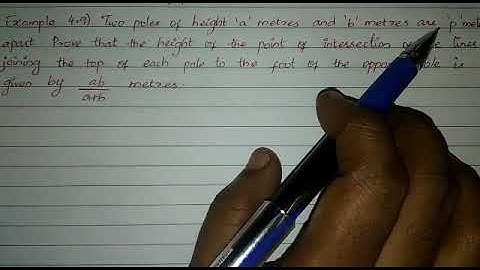 Example 4.9) Two poles of height 'a' metres and 'b' metres are 'p' met
apart. Prove that the height of the point of intersection of the lines
joining the top of each pole to the foot of the pole is
given by ab/a+b metres.